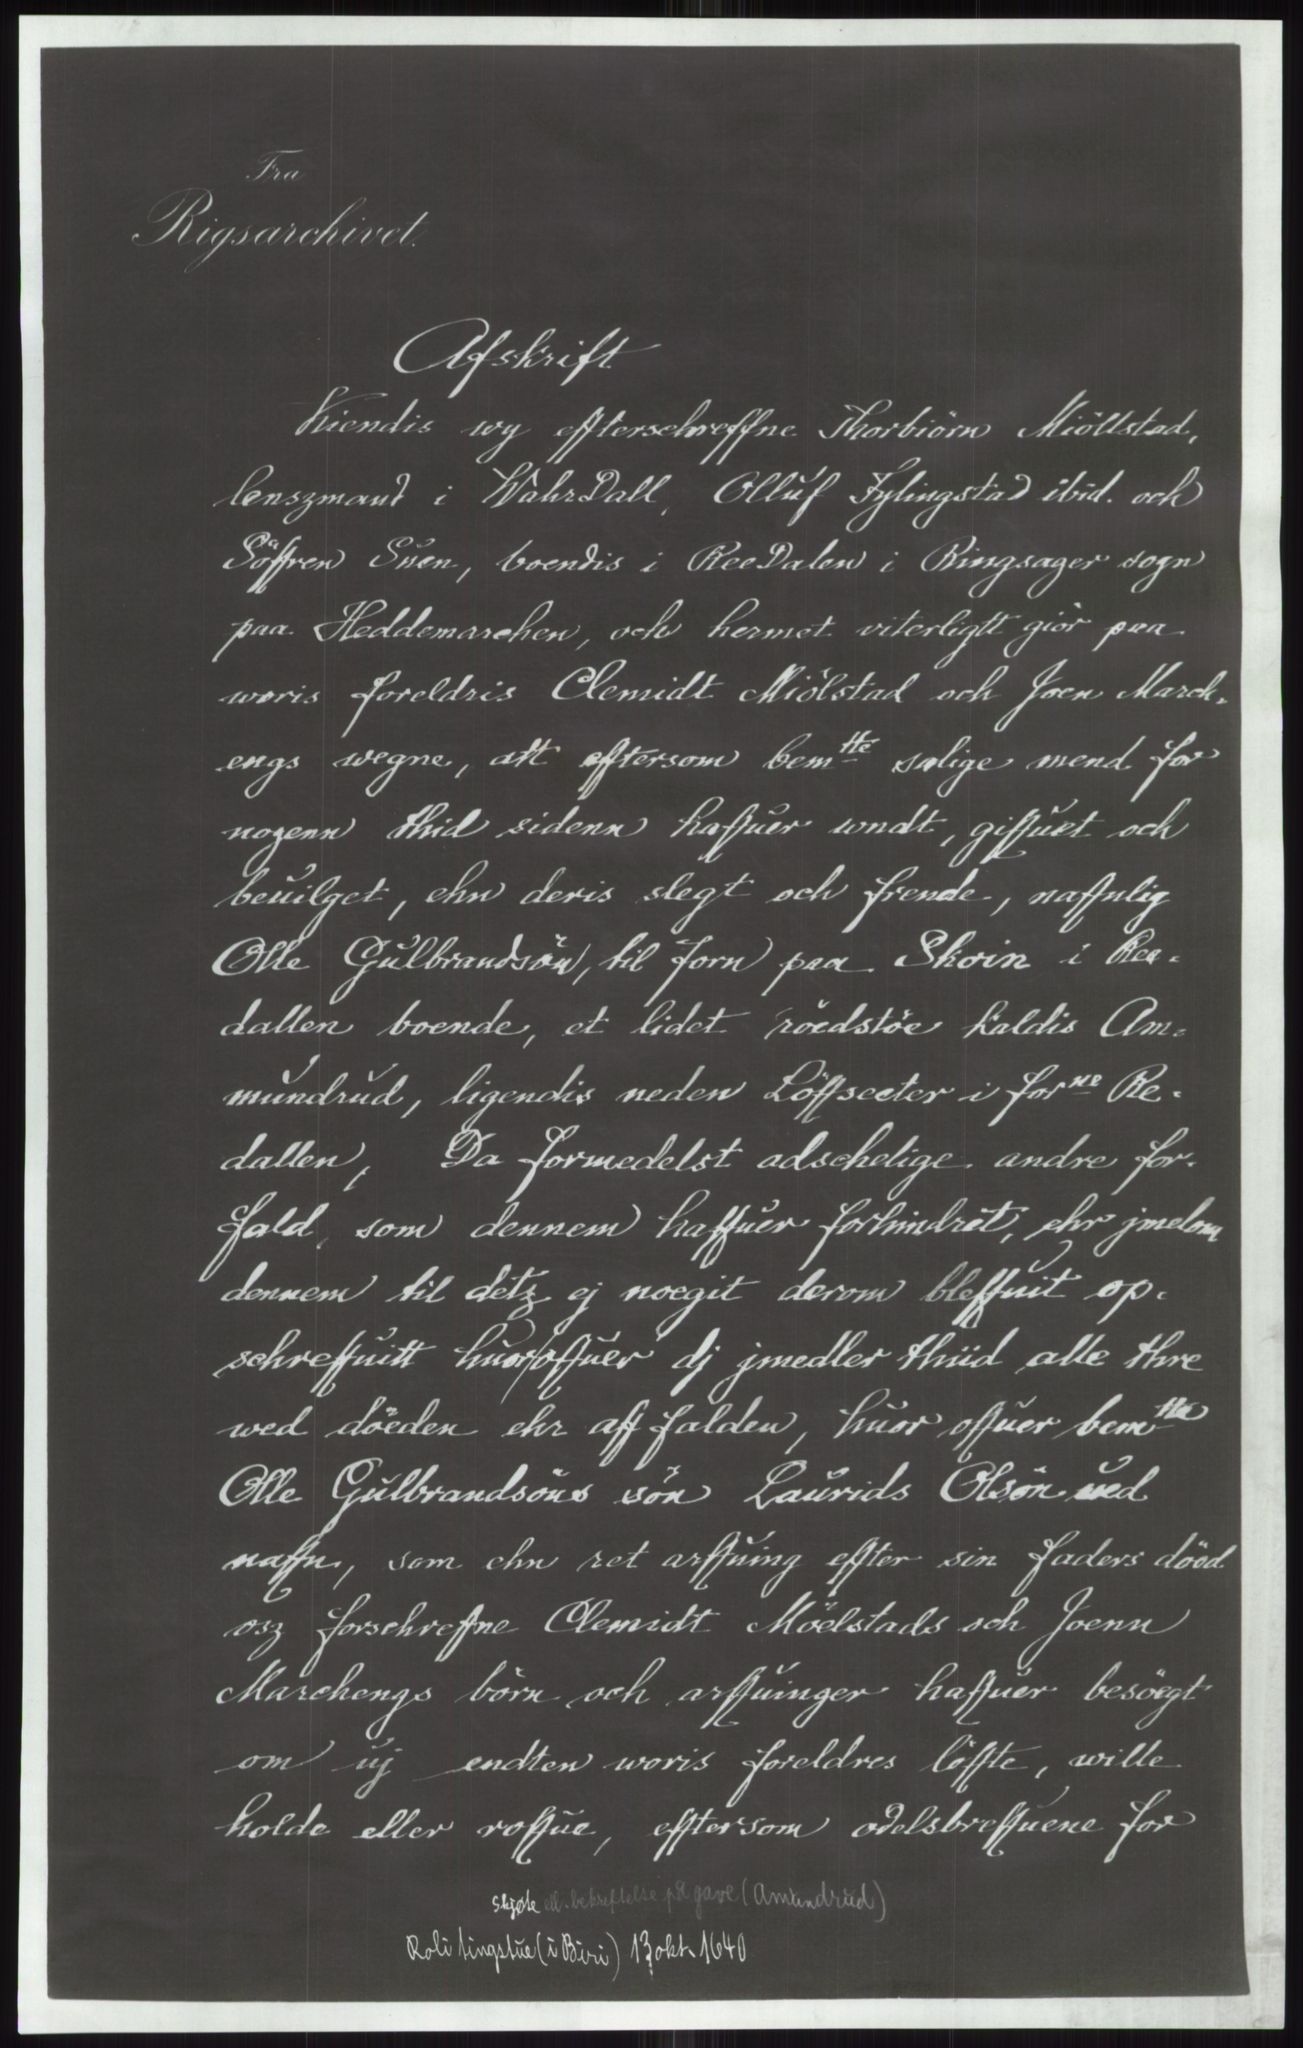 Fra
Rigsarchivet.
Afskrift
Kiendis wy efterschreffne Thorbiörn Miöllstad,
lenszmand i WahrDall, Olluf Fylingstad ibid. och
Söffren Suen, boendis i ReeDalen i Ringsager sogn
paa Heddemarchen, och hermet viterligtt giör paa
woris foreldris Clemidt Miölstad och Joen March-
engs wegne, att eftersom bem.tte salige mend for
nogenn thid sidenn haffuer wndt, giffuet och
beuilget, ehn deris slegt och frende, naffnlig
Olle Gulbrandsön, til forn paa Skoin i Ree-
dallen boende, et lidet röedstöe kaldis Am-
mundrud, ligendis neden Löffseeter i forne Re-
dallen, Da formedelst adschelige andre for-
fald, som dennem haffuer forhindret, ehr jmelom
dennem til detz ej noegit derom bleffuit op-
schreffuitt huoroffuer dj jmedler thiid alle thre
wed döeden ehr aff falden, huor offuer bemtte
Olle Gulbrandsöns sön Laurids Olsön ued
naffn, som ehn ret arffuing effter sin faders dööd
osz forschreffne Clemidt Möelstads och Joenn
Marchengs börn och arffuinger haffuer besöegt
om uj endten woris foreldres löffte, wille
holde eller roffue, efftersom odelsbreffuene for
Skjøte ell. bekreftelse på gave (Amundrud)
Roli tingstue (i Biri) 13 okt. 1640